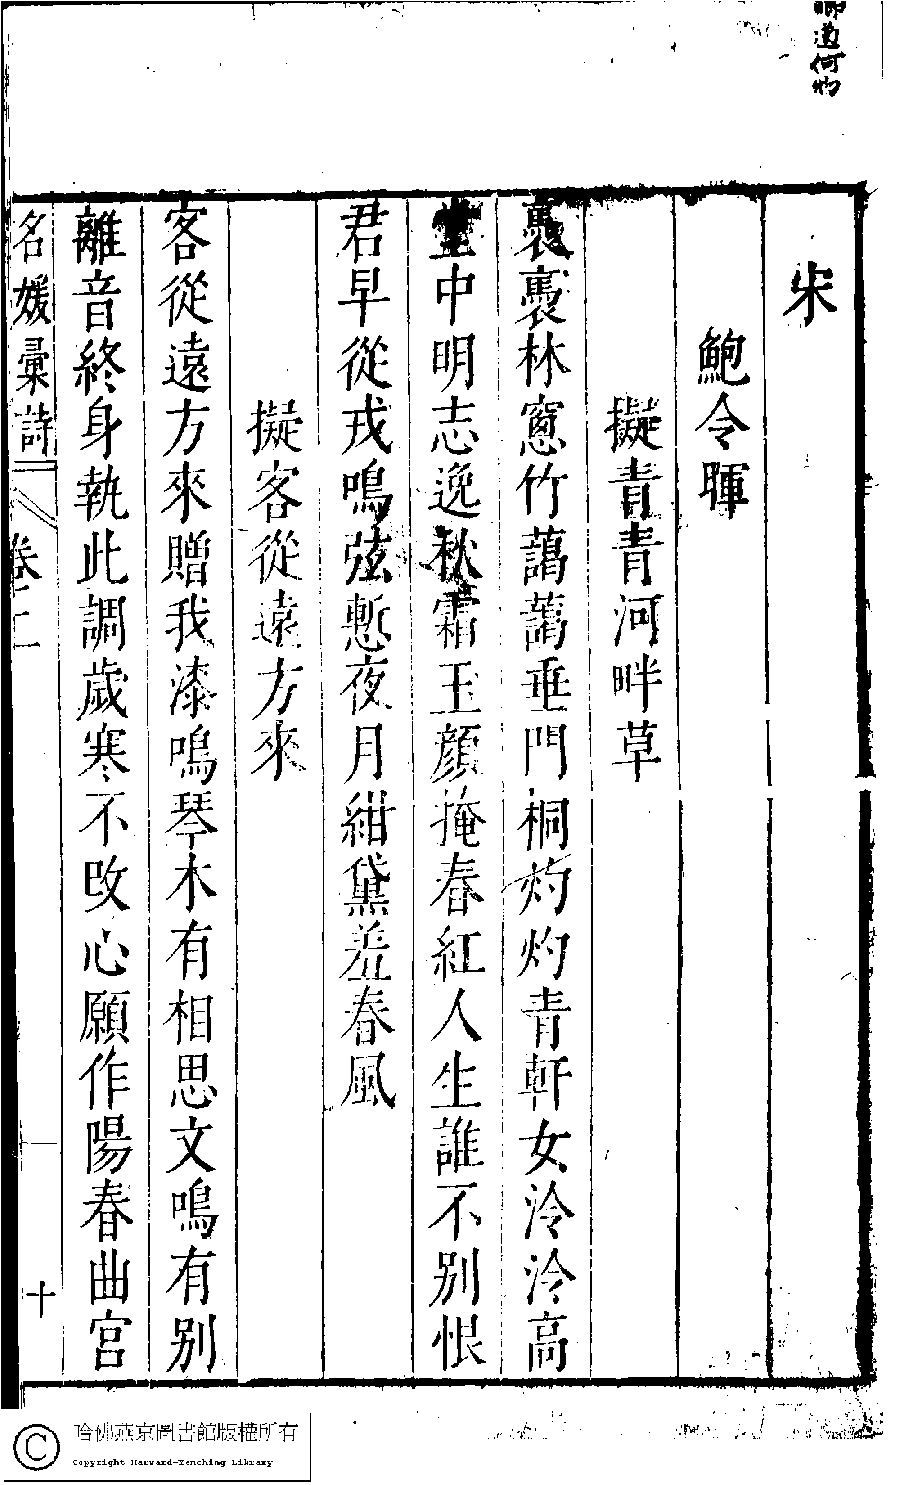 道何物
宋
鮑令暉
擬青青河畔草
裊裊林窻竹藹藹垂門桐灼灼青軒女泠泠高
臺中明志逸秋霜玉顏掩春紅人生誰不别恨
君早從戎鳴弦慙夜月紺黛羞春風
擬客從遠方來
客從遠方來贈我漆鳴琴木有相思文鳴有别
離音終身執此調歲寒不攺心願作陽春曲宮
名媛彙詩 卷二 十
哈佛燕京圖書館版權所有
Copyright Harvard-Yenching Library